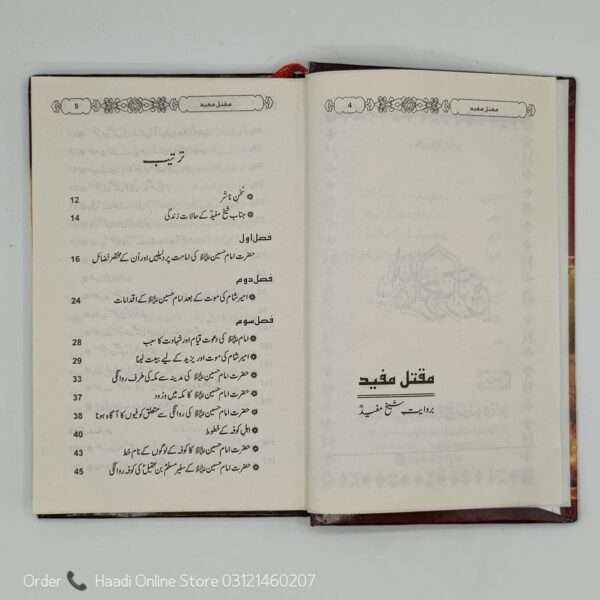 مقتل مفید
4
مقتل مفید
بروایت شیخ مفیدؒ
مقتل مفید
5
ترتیب
سُخن ناشر 12
جناب شیخ مفیدؒ کے حالات زندگی 14
فصل اول
حضرت امام حسین علیہ السلام کی امامت پر دلیلیں اور اُن کے مختصر فضائل 16
فصل دوم
امیر شام کی موت کے بعد امام حسین علیہ السلام کے اقدامات 24
فصل سوم
امام علیہ السلام کی دعوت قیام اور شہادت کا سبب 28
امیر شام کی موت اور یزید کے لیے بیعت لینا 29
حضرت امام حسین علیہ السلام کی مدینہ سے مکہ کی طرف روانگی 33
حضرت امام حسین علیہ السلام کا مکہ میں ورود 37
حضرت امام حسین علیہ السلام کی روانگی سے متعلق کوفیوں کا آگاہ ہونا 38
اہل کوفہ کے خطوط 40
حضرت امام حسین علیہ السلام کا کوفہ کے لوگوں کے نام خط 43
حضرت امام حسین علیہ السلام کے سفیر مسلم بن عقیلؑ کی کوفہ روانگی 45
Order Haadi Online Store 03121460207